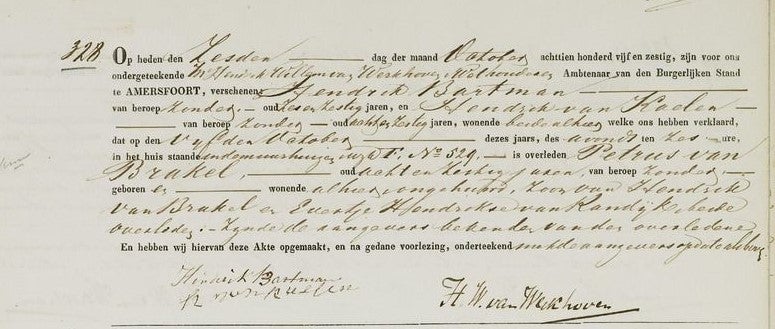 328 Op heden den Zesden dag der maand October achttien honderd vijf en zestig, zijn voor ons
ondergeteekende Mr Henrick Willem van Werkhoven Wethouder Ambtenaar van den Burgerlijken Stand
te AMERSFOORT, verschenen Hendrik Bartman
van beroep zonder oud zes en zestig jaren, en Hendrik van Kaelen
van beroep zonder oud acht en zestig jaren, wonende beide alhier welke ons hebben verklaard,
dat op den Vijfden October dezes jaars, des avonds ten zes ure,
in het huis staande in de wijk F. No 529, is overleden Petrus van
Brakel, oud acht en zestig jaren, van beroep zonder
geboren en wonende alhier ongehuwd, Zoon van Hendrik
van Brakel en Evertje Hendrikse van Randijk beide
overleden. Zijnde de aangevers bekenden van den overledene
En hebben wij hiervan deze Akte opgemaakt, en na gedane voorlezing, onderteekend met de aangevers
Hindrik Bartman
H. W. van Werkhoven